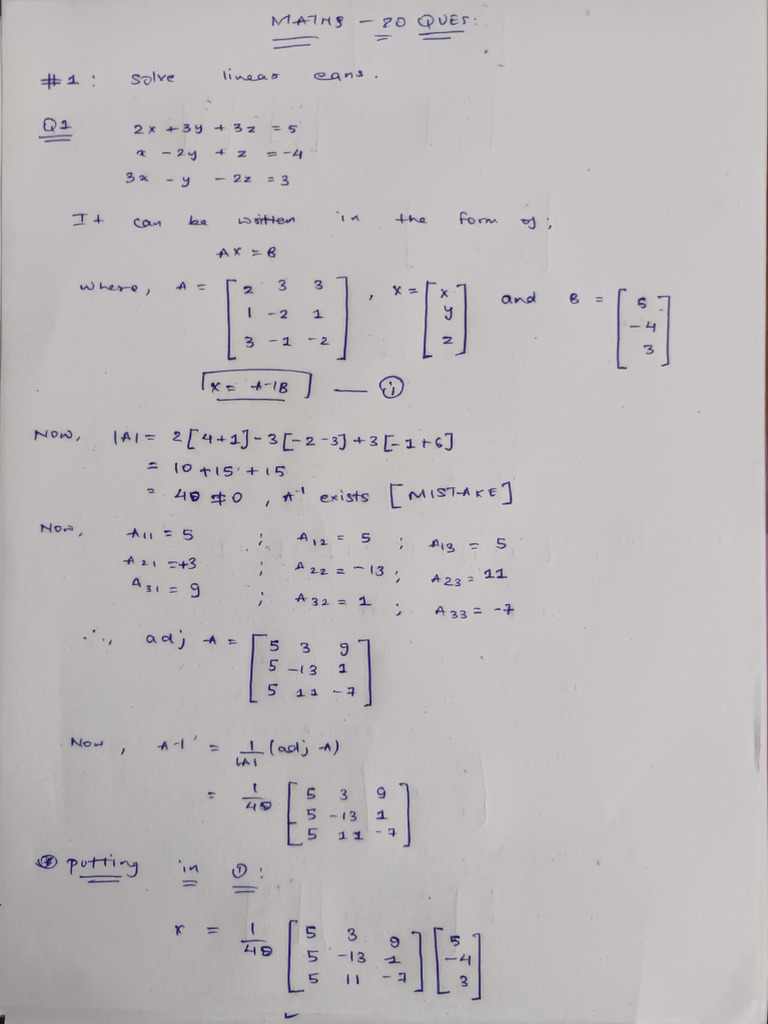 MATHS - 20 QUES:
#1: Solve linear eans.
Q1 2x + 3y + 3z = 5
x - 2y + z = -4
3x - y - 2z = 3
It can be written in the form of;
AX = B
where, A = [2 3 3
1 -2 1
3 -1 -2], X = [x
y
z] and B = [5
-4
3]
X = A-1B — ①
Now, |A| = 2[4+1] - 3[-2-3] + 3[-1+6]
= 10 + 15 + 15
= 40 ≠ 0, A-1 exists [MISTAKE]
Now, A11 = 5 ; A12 = 5 ; A13 = 5
A21 = +3 ; A22 = -13 ; A23 = 11
A31 = 9 ; A32 = 1 ; A33 = -7
∴, adj A = [5 3 9
5 -13 1
5 11 -7]
Now, A-1 = 1/|A| (adj A)
= 1/40 [5 3 9
5 -13 1
5 11 -7]
putting in ①:
X = 1/40 [5 3 9
5 -13 1
5 11 -7] [5
-4
3]